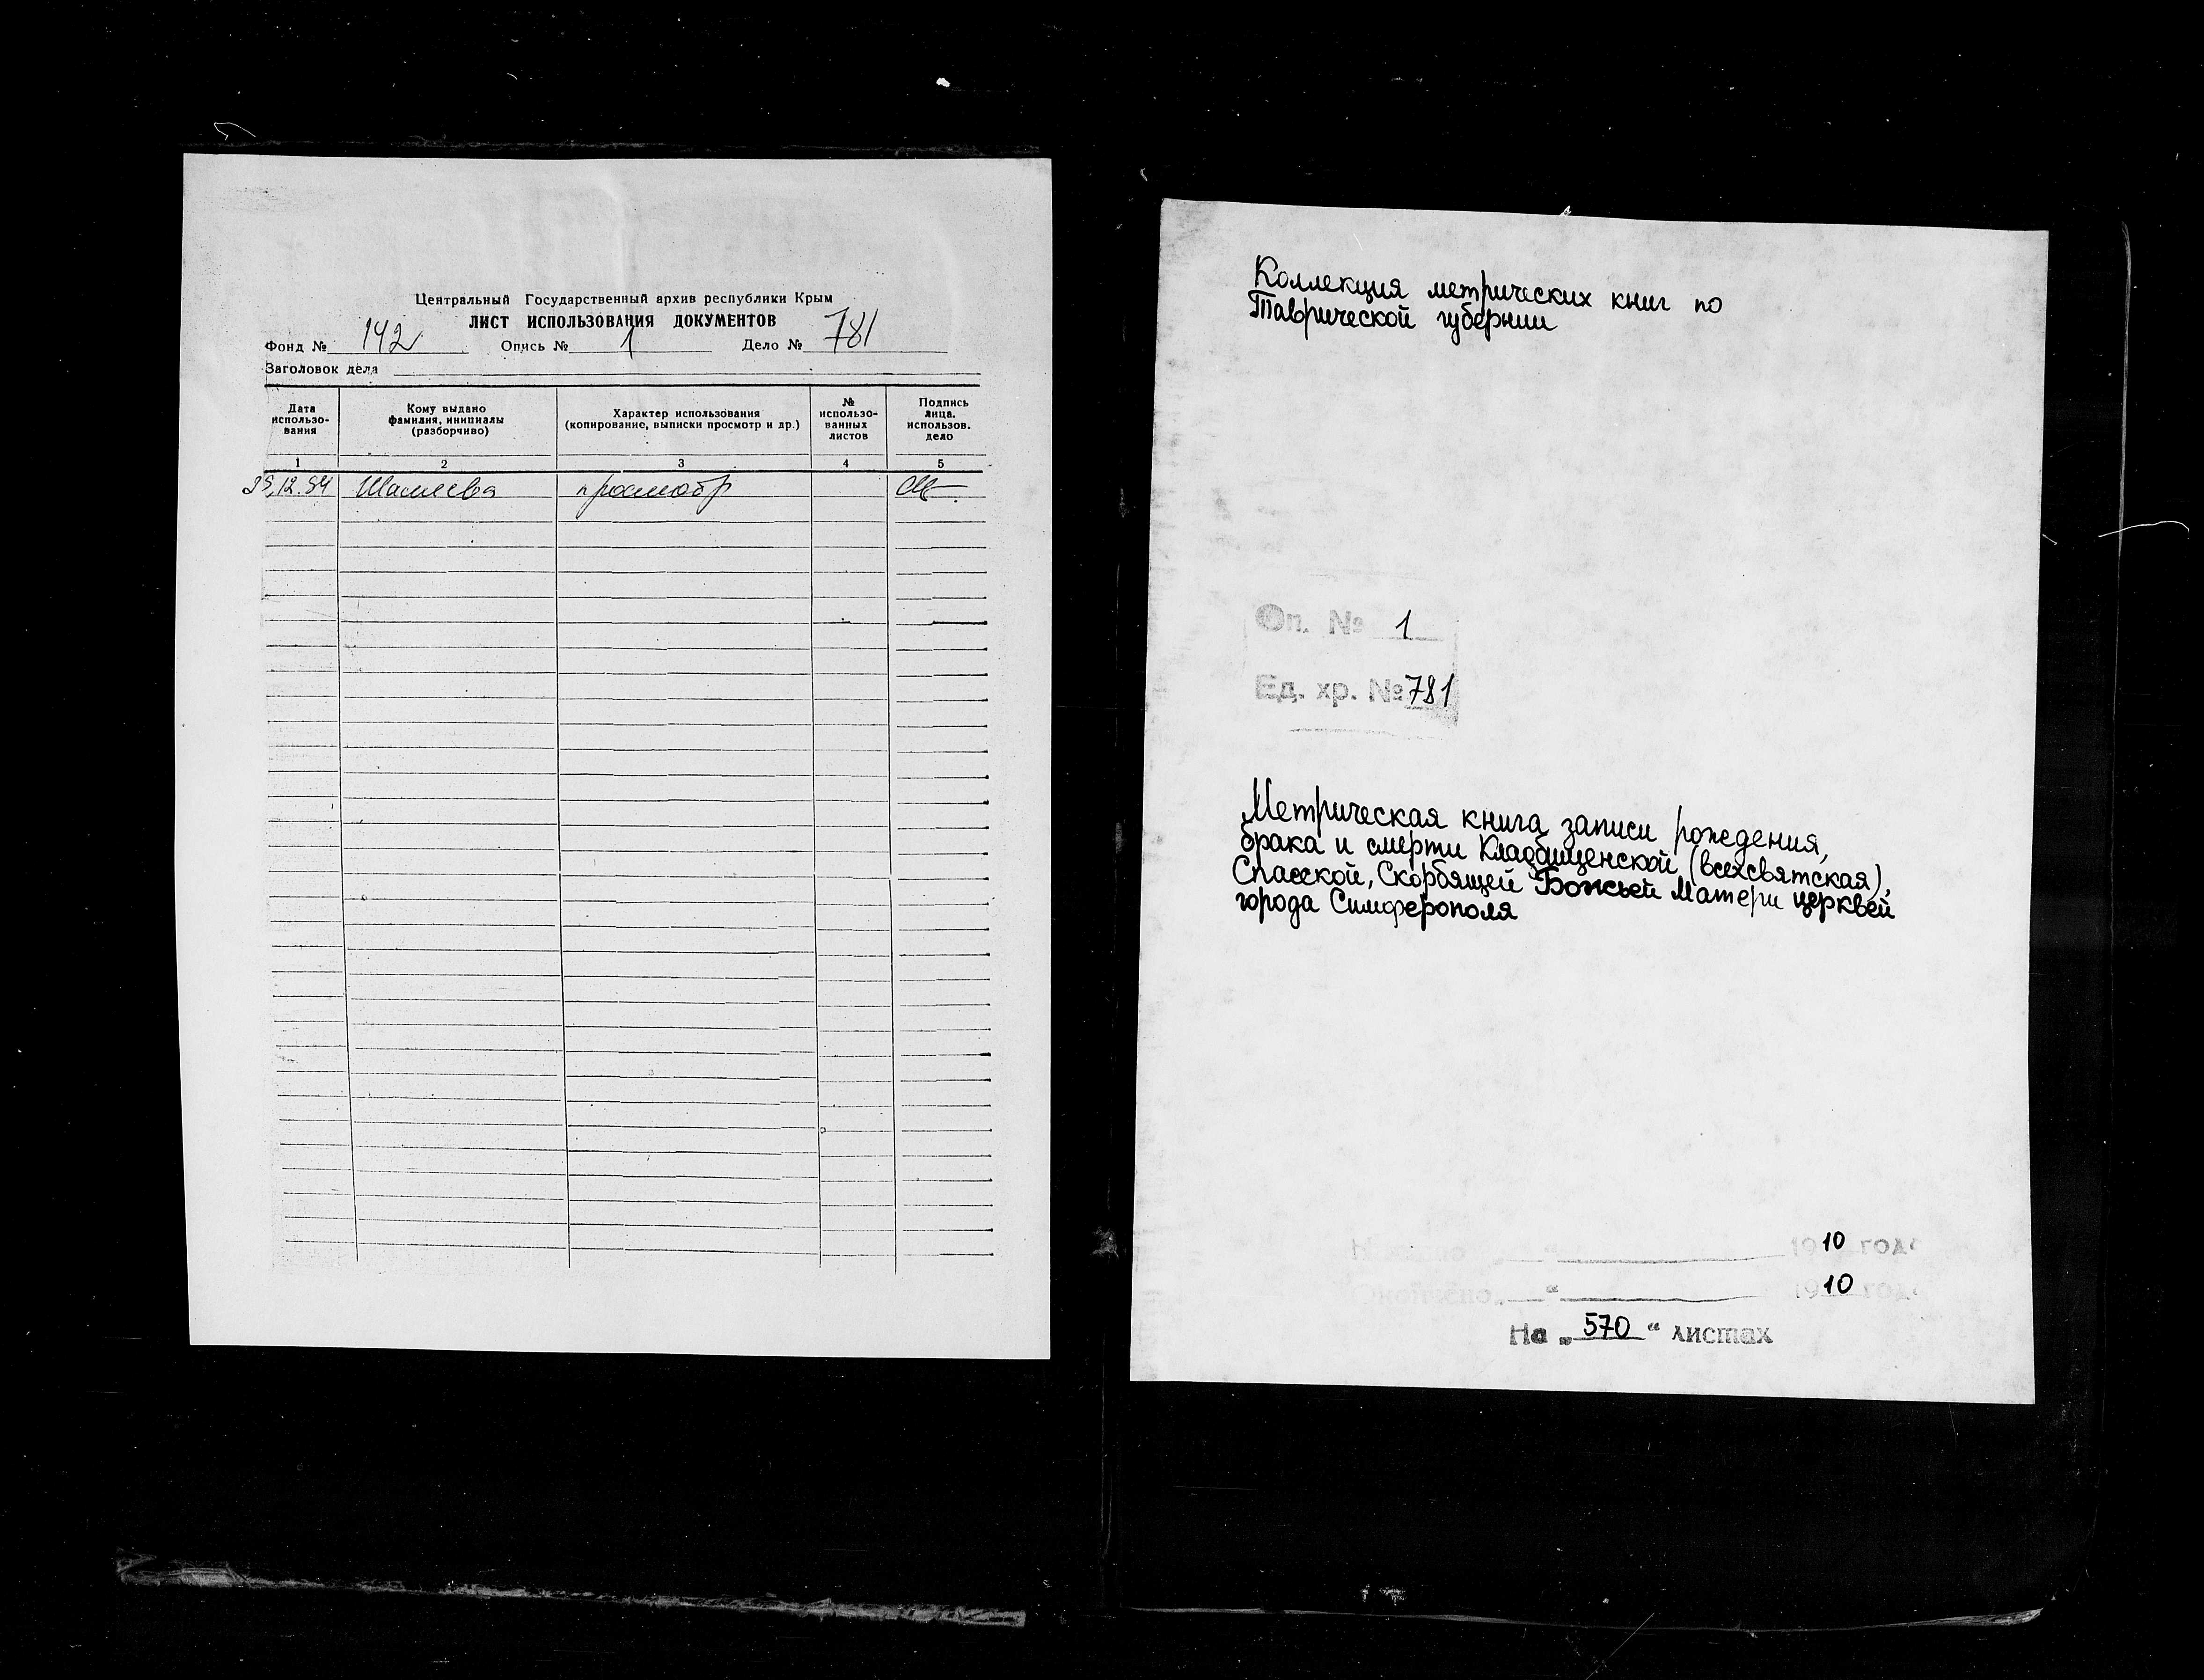 Центральный Государственный архив республики Крым
ЛИСТ ИСПОЛЬЗОВАНИЯ ДОКУМЕНТОВ
Фонд № 142 Опись № 1 Дело № 781
Заголовок дела
Дата использо-вания
Кому выдано фамилия, инициалы (разборчиво)
Характер использования (копирование, выписки просмотр и др.)
№ использо-ванных листов
Подпись лица. использов. дело
1 2 3 4 5
просмотр
Коллекция метрических книг по
Таврической губернии
Оп. № 1
Ед. хр. № 781
Метрическая книга записи рождения,
брака и смерти Кладбищенской (всехсвятская),
Спасской, Скорбящей Божьей Матери церквей
города Симферополя
1910 год
1910 год
На „ 570 “ листах